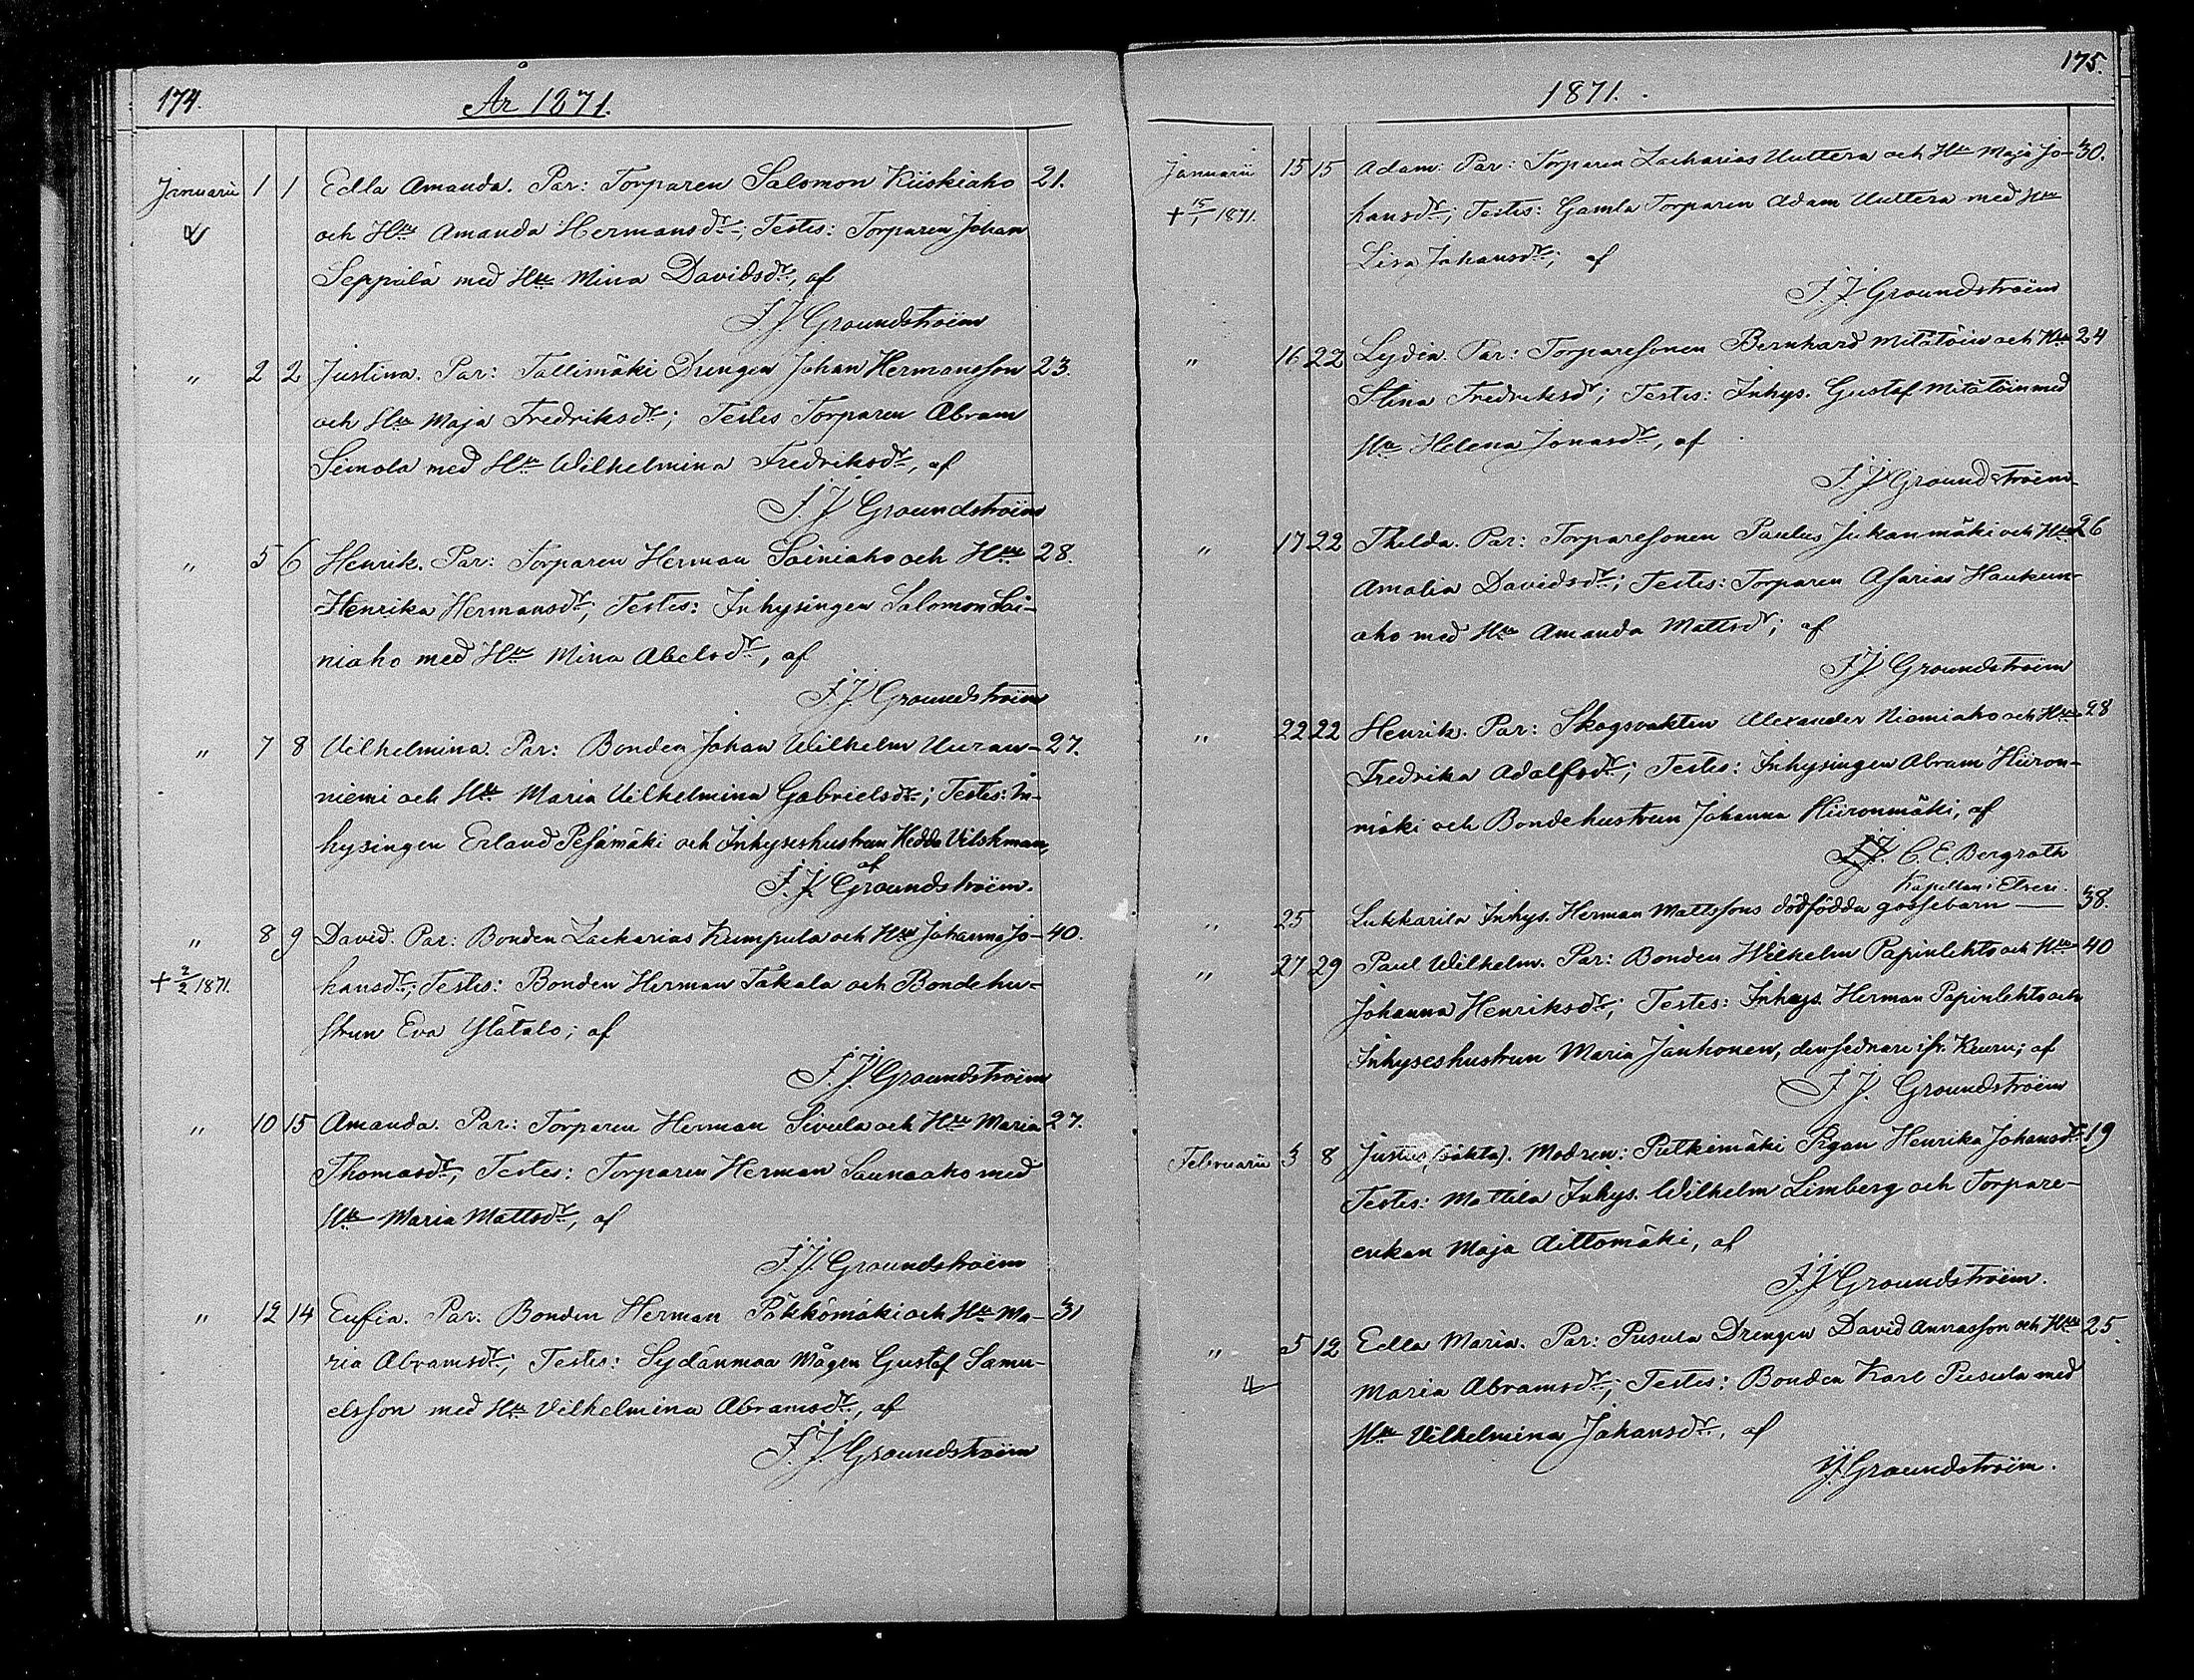 174.
År 1871.
Januarii 1 1 Edla Amanda. Par: Torparen Salomon Kiiskiaho 21.
och Hu Amanda Hermansdr; Testes: Torparen Johan
Seppälä med Hu Mina Davidsdr, af
F. J. Groundstroëm
" 2 2 Justina. Par: Tallimäki Drengen Johan Hermansson 23.
och Hu Maja Fredriksdr; Testes Torparen Abram
Simola med Hu Wilhelmina Fredriksdr, af
F. J. Groundstroëm
" 5 6 Henrik. Par: Torparen Herman Soiniaho och Hu 28.
Henrika Hermansdr; Testes: Inhysingen Salomon Soi-
niaho med Hu Mina Abelsdr, af
F. J. Groundstroëm
" 7 8 Vilhelmina. Par: Bonden Johan Wilhelm Uuran- 27.
niemi och Hu Maria Vilhelmina Gabrielsdr; Testes: In-
hysingen Erland Pesämäki och Inhyseshustrun Hedda Vilskman,
af
F. J. Groundstroëm.
" 8 9 David. Par: Bonden Zackarias Kumpula och Hu Johanna Jo- 40.
+ 2/2 1871. hansdr; Testes: Bonden Herman Takala och Bondehu-
strun Eva Ylätalo; af
F. J. Groundstroëm
" 10 15 Amanda. Par: Torparen Herman Sivula och Hu Maria 27.
Thomasdr, Testes: Torparen Herman Saunaaho med
Hu Maria Mattsdr, af
F. J. Groundstroëm
" 12 14 Eufia. Par: Bonden Herman Pökkömäki och Hu Ma- 31
ria Abramsdr; Testes: Sydänmaa Mågen Gustaf Samu-
elsson med Hu Vilhelmina Abramsdr, af
F. J. Groundstroëm
175.
1871.
Januarii 15 15 Adam. Par: Torparen Zacharias Uuttera och Hu Maja Jo- 30.
+ 15/1 1871. hansdr; Testes: Gamla Torparen Adam Uuttera med Hu
Lisa Johansdr; af
F. J. Groundstroëm
" 16 22 Lydia. Par: Torparesonen Bernhard Mitätöin och Hu 24
Stina Fredriksdr; Testes: Inhys. Gustaf Mitätöin med
Hu Helena Jonasdr, af
F. J. Groundstroëm
" 17 22 Thilda. Par: Torparesonen Paulus Jukanmäki och Hu 26
Amalia Davidsdr; Testes: Torparen Asarias Haukun-
aho med Hu Amanda Mattsdr; af
F. J. Groundstroëm
" 22 22 Henrik. Par: Skogsvakten Alexander Niemiaho och Hu 28
Fredrika Adolfsdr; Testes: Inhysingen Abram Hiiron-
mäki och Bondehustrun Johanna Hiironmäki, af
C. E. Bergroth
Kapellan i Etseri.
" 25 Lukkarila Inhys. Herman Mattssons dödfödda gossebarn — 38.
" 27 29 Paul Wilhelm. Par: Bonden Wilhelm Papinlehto och Hu 40
Johanna Henriksdr; Testes: Inhys. Herman Papinlehto och
Inhyseshustrun Maria Janhonen, den sednare ifr. Keuru; af
F. J. Groundstroëm
Februarii 3 8 Justus, (oäkta). Modren: Pitkämäki Pigan Henrika Johansdr 19
Testes: Mattila Inhys. Wilhelm Limberg och Torpare-
enkan Maja Aittomäki, af
F. J. Groundstroëm.
" 5 12 Edla Maria. Par: Pusula Drengen David Annasson och Hu 25.
Maria Abramsdr; Testes: Bonden Karl Pusula med
Hu Vilhelmina Johansdr, af
F. J. Groundstroëm.